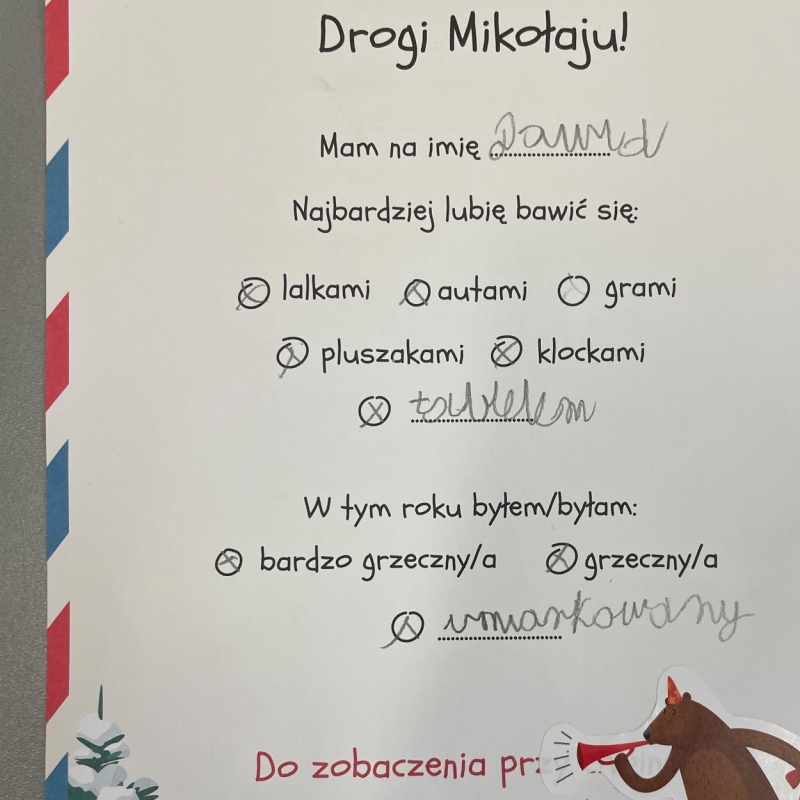 Drogi Mikołaju!
Mam na imię Dawid
Najbardziej lubię bawić się:
lalkami autami grami
pluszakami klockami
W tym roku byłem/byłam:
bardzo grzeczny/a grzeczny/a
umiarkowany
Do zobaczenia